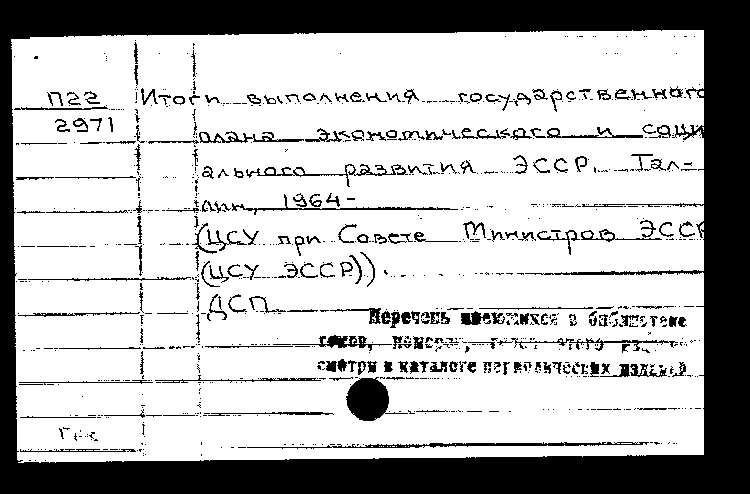 П22
2971
Итоги выполнения государственного
плана экономического и соци
ального развития ЭССР. Тал-
линн, 1964-
(ЦСУ при Совете Министров ЭССР
(ЦСУ ЭССР)).
ДСП
Перечень имеющихся в библиотеке
томов, номеров, этого
смотри в каталоге периодических изданий